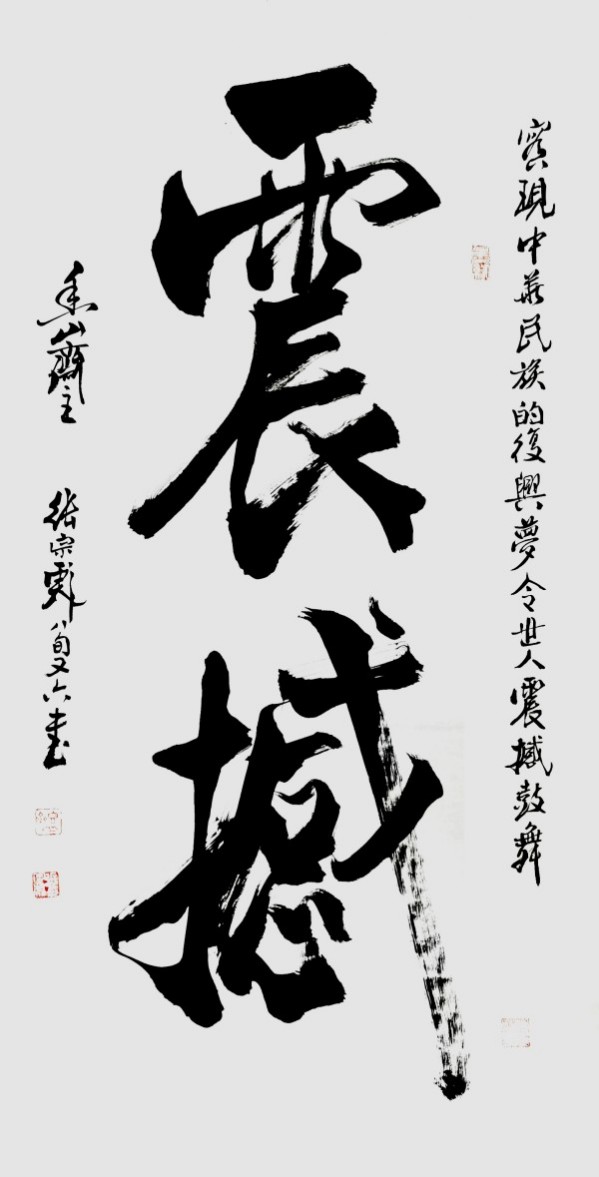 實現中華民族的復興夢令世人震撼鼓舞
震撼
香山齋主
張宗彪八旬又六書